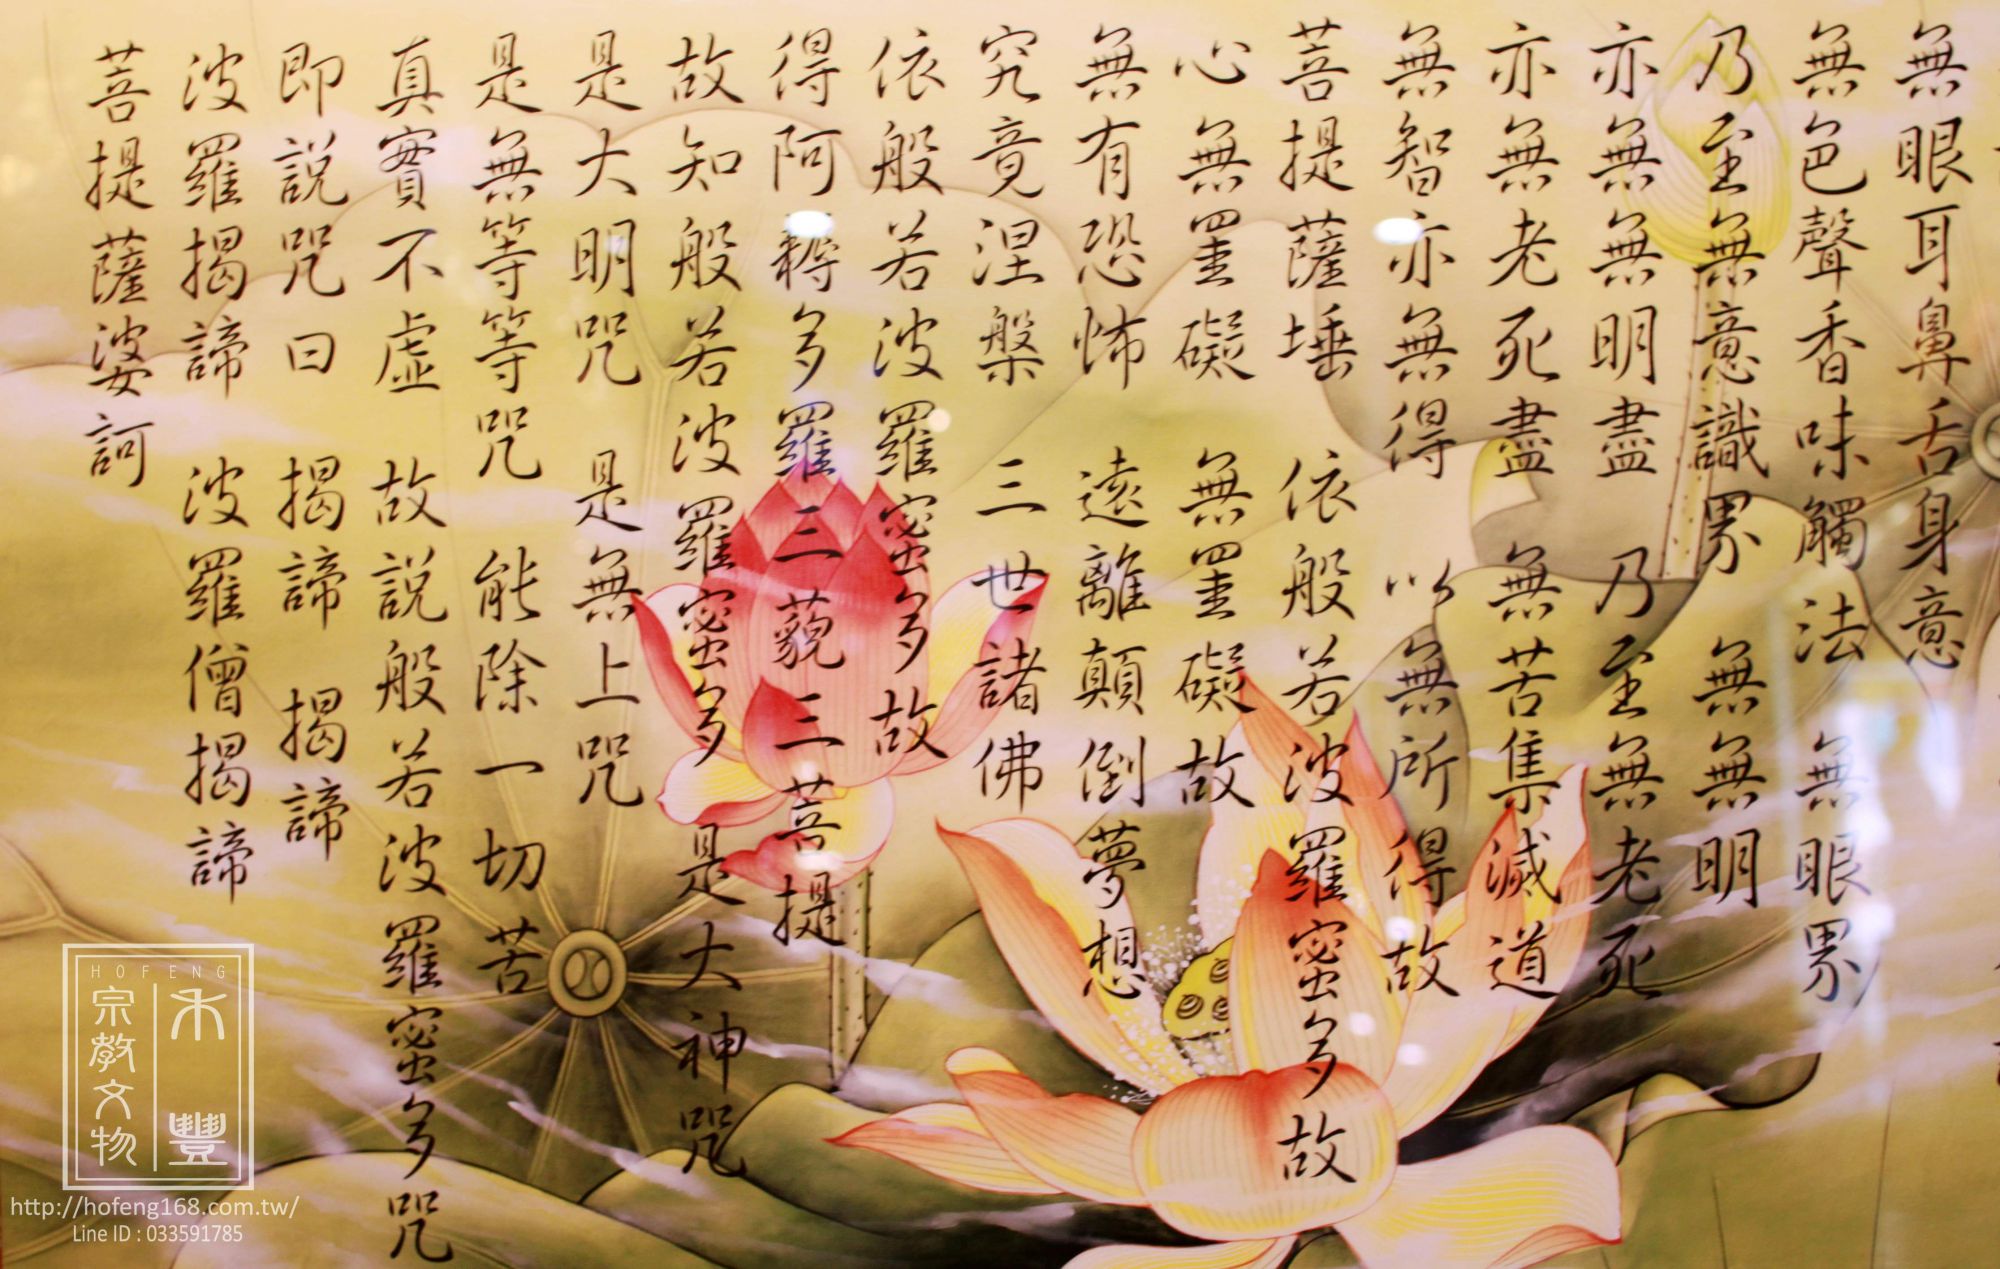 無眼耳鼻舌身意
無色聲香味觸法 無眼界
乃至無意識界 無無明
亦無無明盡 乃至無老死
亦無老死盡 無苦集滅道
無智亦無得 以無所得故
菩提薩埵 依般若波羅蜜多故
心無罣礙 無罣礙故
無有恐怖 遠離顛倒夢想
究竟涅槃 三世諸佛
依般若波羅蜜多故
得阿耨多羅三藐三菩提
故知般若波羅蜜多 是大神咒
是大明咒 是無上咒
是無等等咒 能除一切苦
真實不虛 故說般若波羅蜜多咒
即說咒曰 揭諦 揭諦
波羅揭諦 波羅僧揭諦
菩提薩婆訶
HOFENG
禾豐
宗教文物
http://hofeng168.com.tw/
Line ID : 033591785